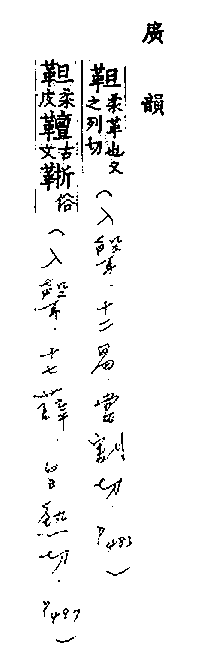 廣韻
靼柔革也又之列切(入聲.十二曷.當割切.P483)
靼柔皮䩥古文䩢俗(入聲.十七薛.旨熱切.P497)